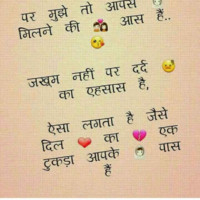 पर मुझे तो आपसे
मिलने की आस हैं..
जख़्म नहीं पर दर्द
का एहसास है,
ऐसा लगता है जैसे
दिल का एक
टुकड़ा आपके पास
हैं